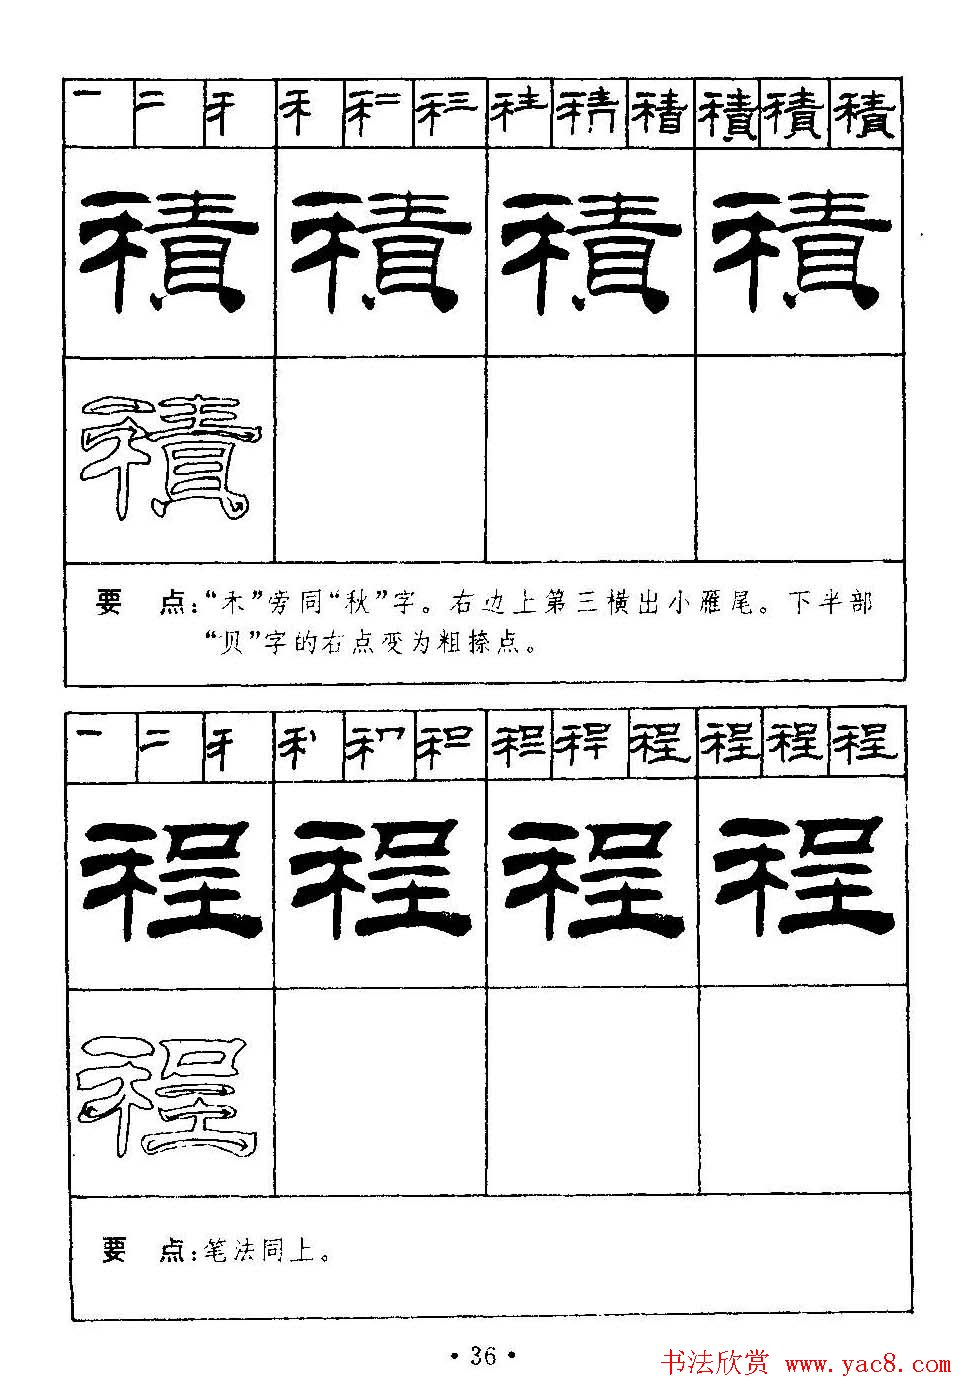 積 積 積 積
積
要 点:“禾”旁同“秋”字。右边上第三横出小雁尾。下半部
“贝”字的右点变为粗捺点。
程 程 程 程
程
要 点:笔法同上。
·36·
书法欣赏 www.yac8.com